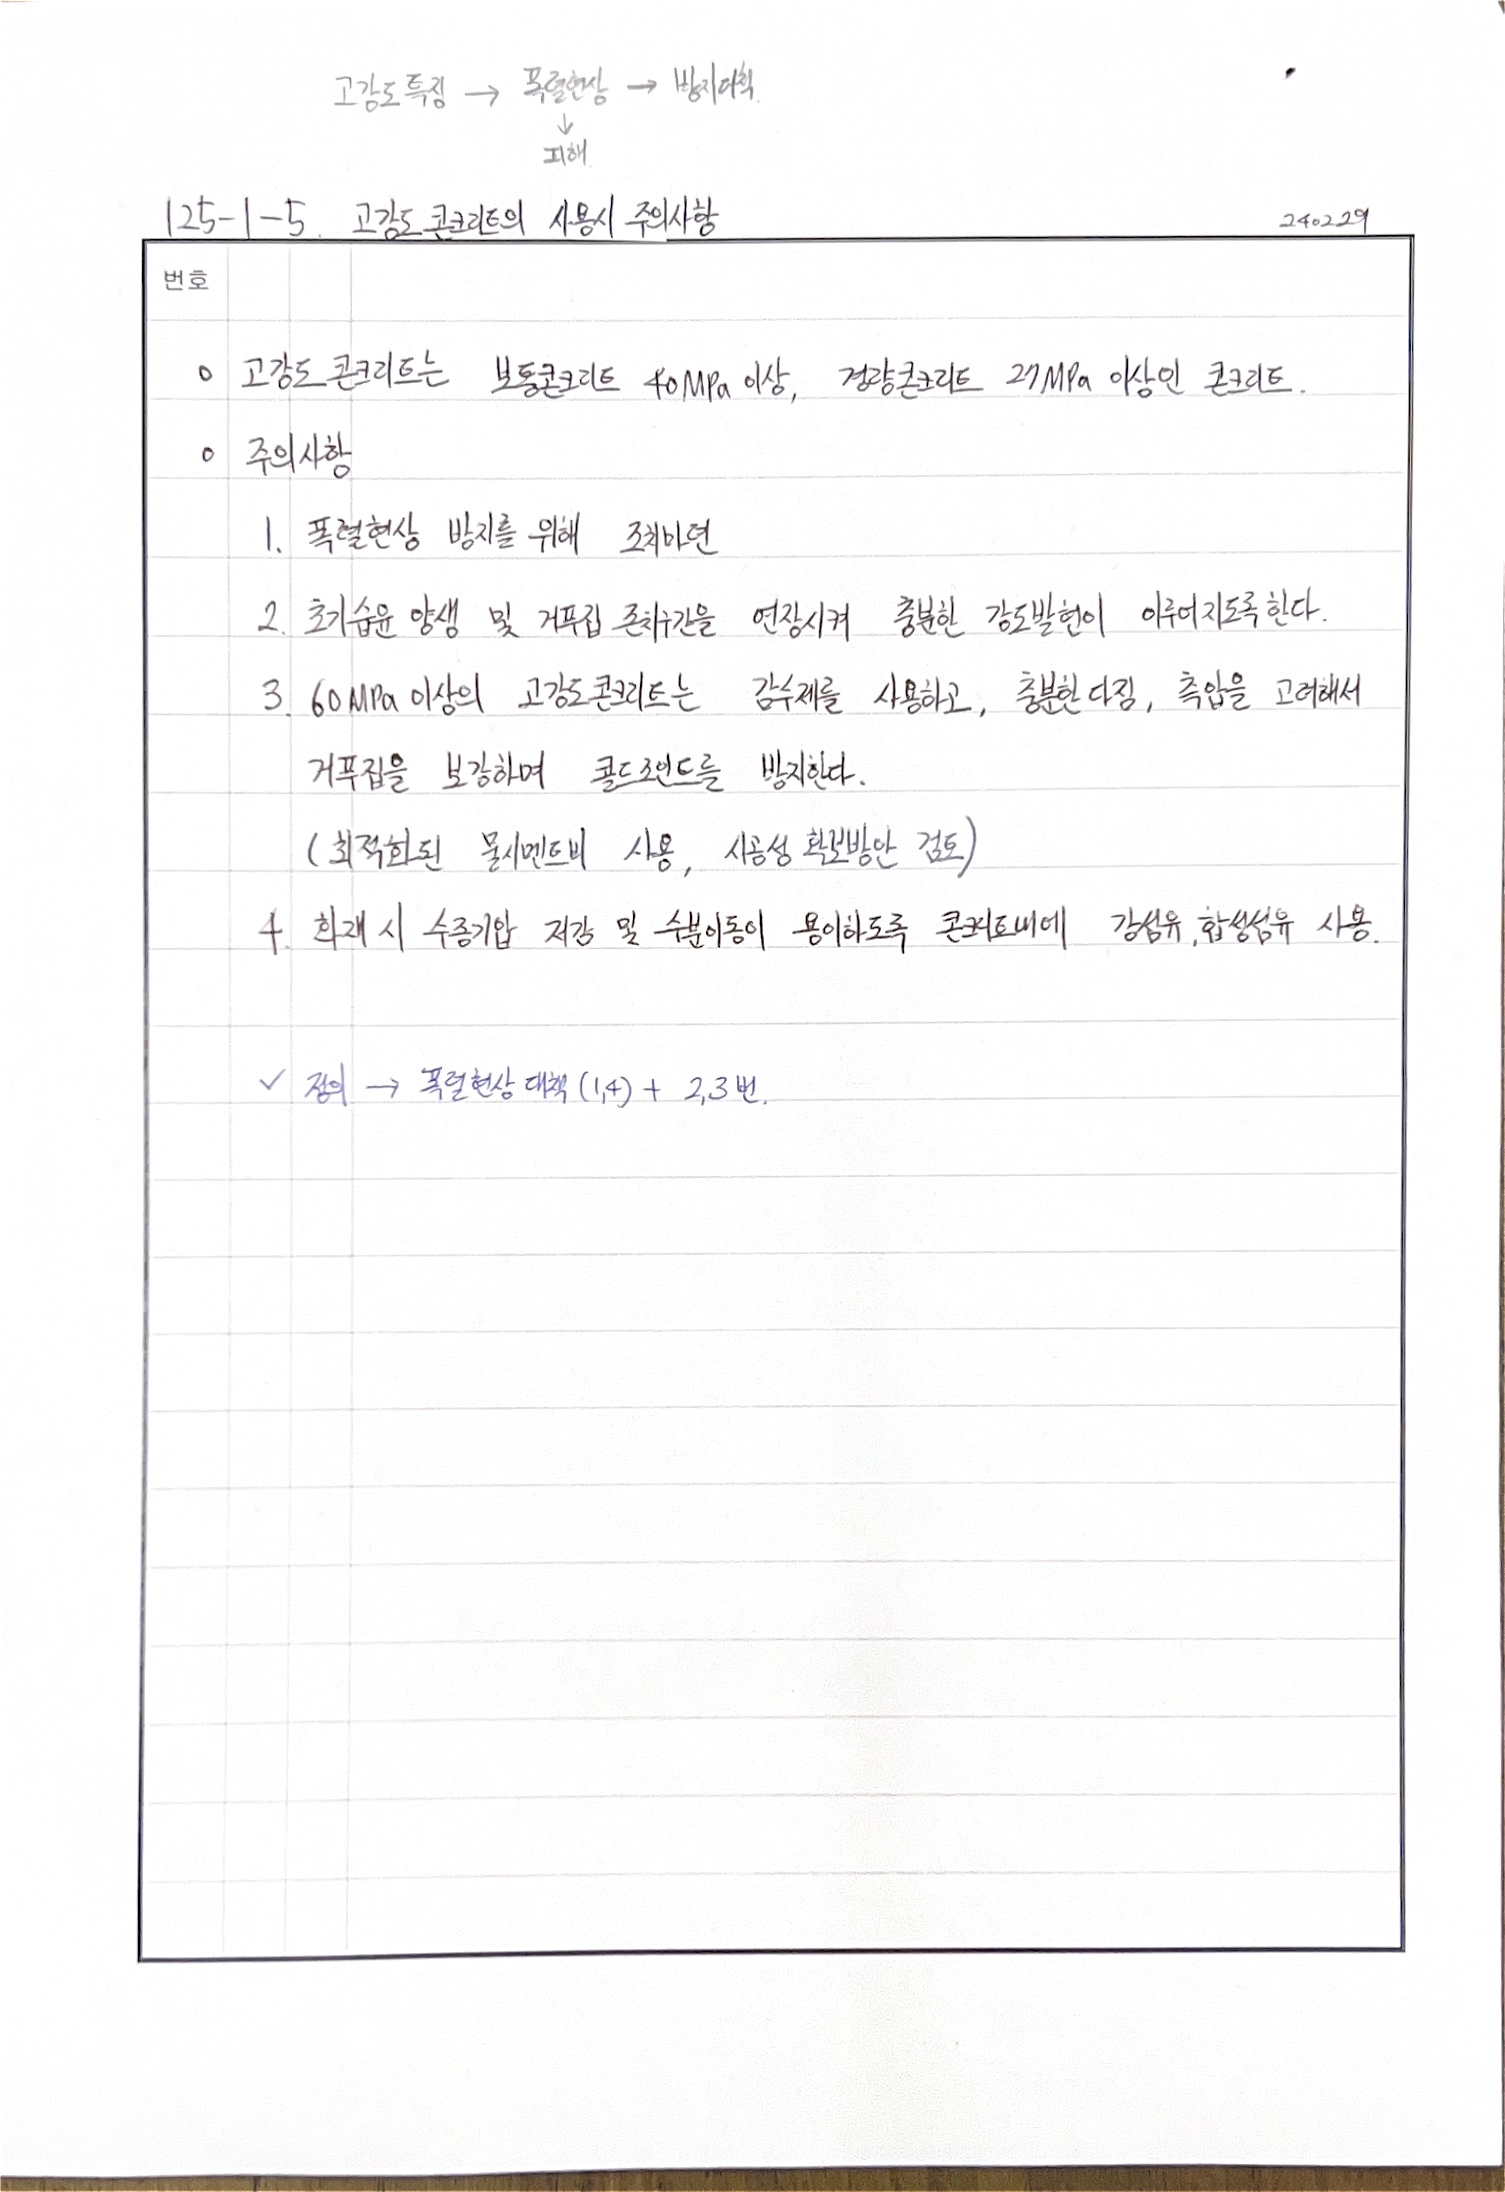 고강도특징 → 폭렬현상 → 방지대책
↓
피해
125-1-5. 고강도 콘크리트의 사용시 주의사항
240229
번호
○ 고강도 콘크리트는 보통콘크리트 40MPa 이상, 경량콘크리트 27MPa 이상인 콘크리트.
○ 주의사항
1. 폭렬현상 방지를 위해 조치마련
2. 초기습윤 양생 및 거푸집 존치기간을 연장시켜 충분한 강도발현이 이루어지도록한다.
3. 60MPa 이상의 고강도콘크리트는 감수제를 사용하고, 충분한다짐, 측압을 고려해서
거푸집을 보강하며 콜드조인트를 방지한다.
(최적화된 물시멘트비 사용, 시공성 확보방안 검토)
4. 화재 시 수증기압 저감 및 수분이동이 용이하도록 콘크리트내에 강섬유, 합성섬유 사용.
✓ 정의 → 폭렬현상 대책 (1,4) + 2,3번.